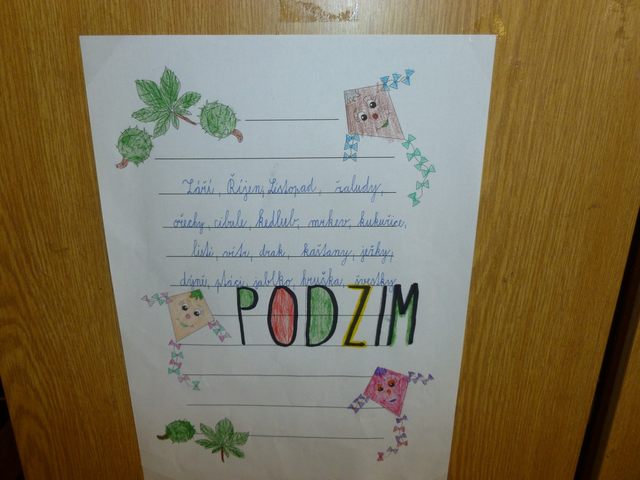 Září, Říjen, Listopad, žaludy,
ořechy, cibule, kedleub, mrkev, kukuřice,
listí, vítr, drak, kaštany, jeřáby,
dýně, ptáci, jablko, hruška, švestky
PODZIM